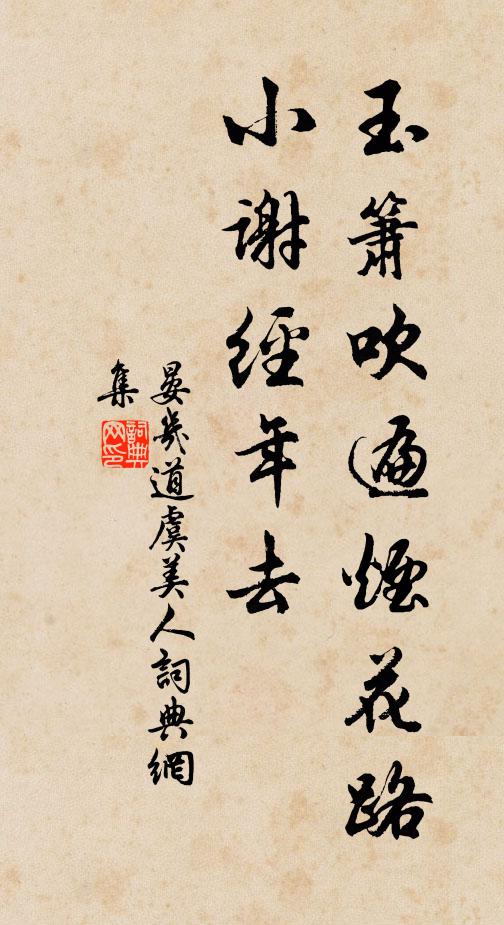 玉簫吹遍煙花路
小謝經年去
晏幾道虞美人詞典網
集
詞典網印